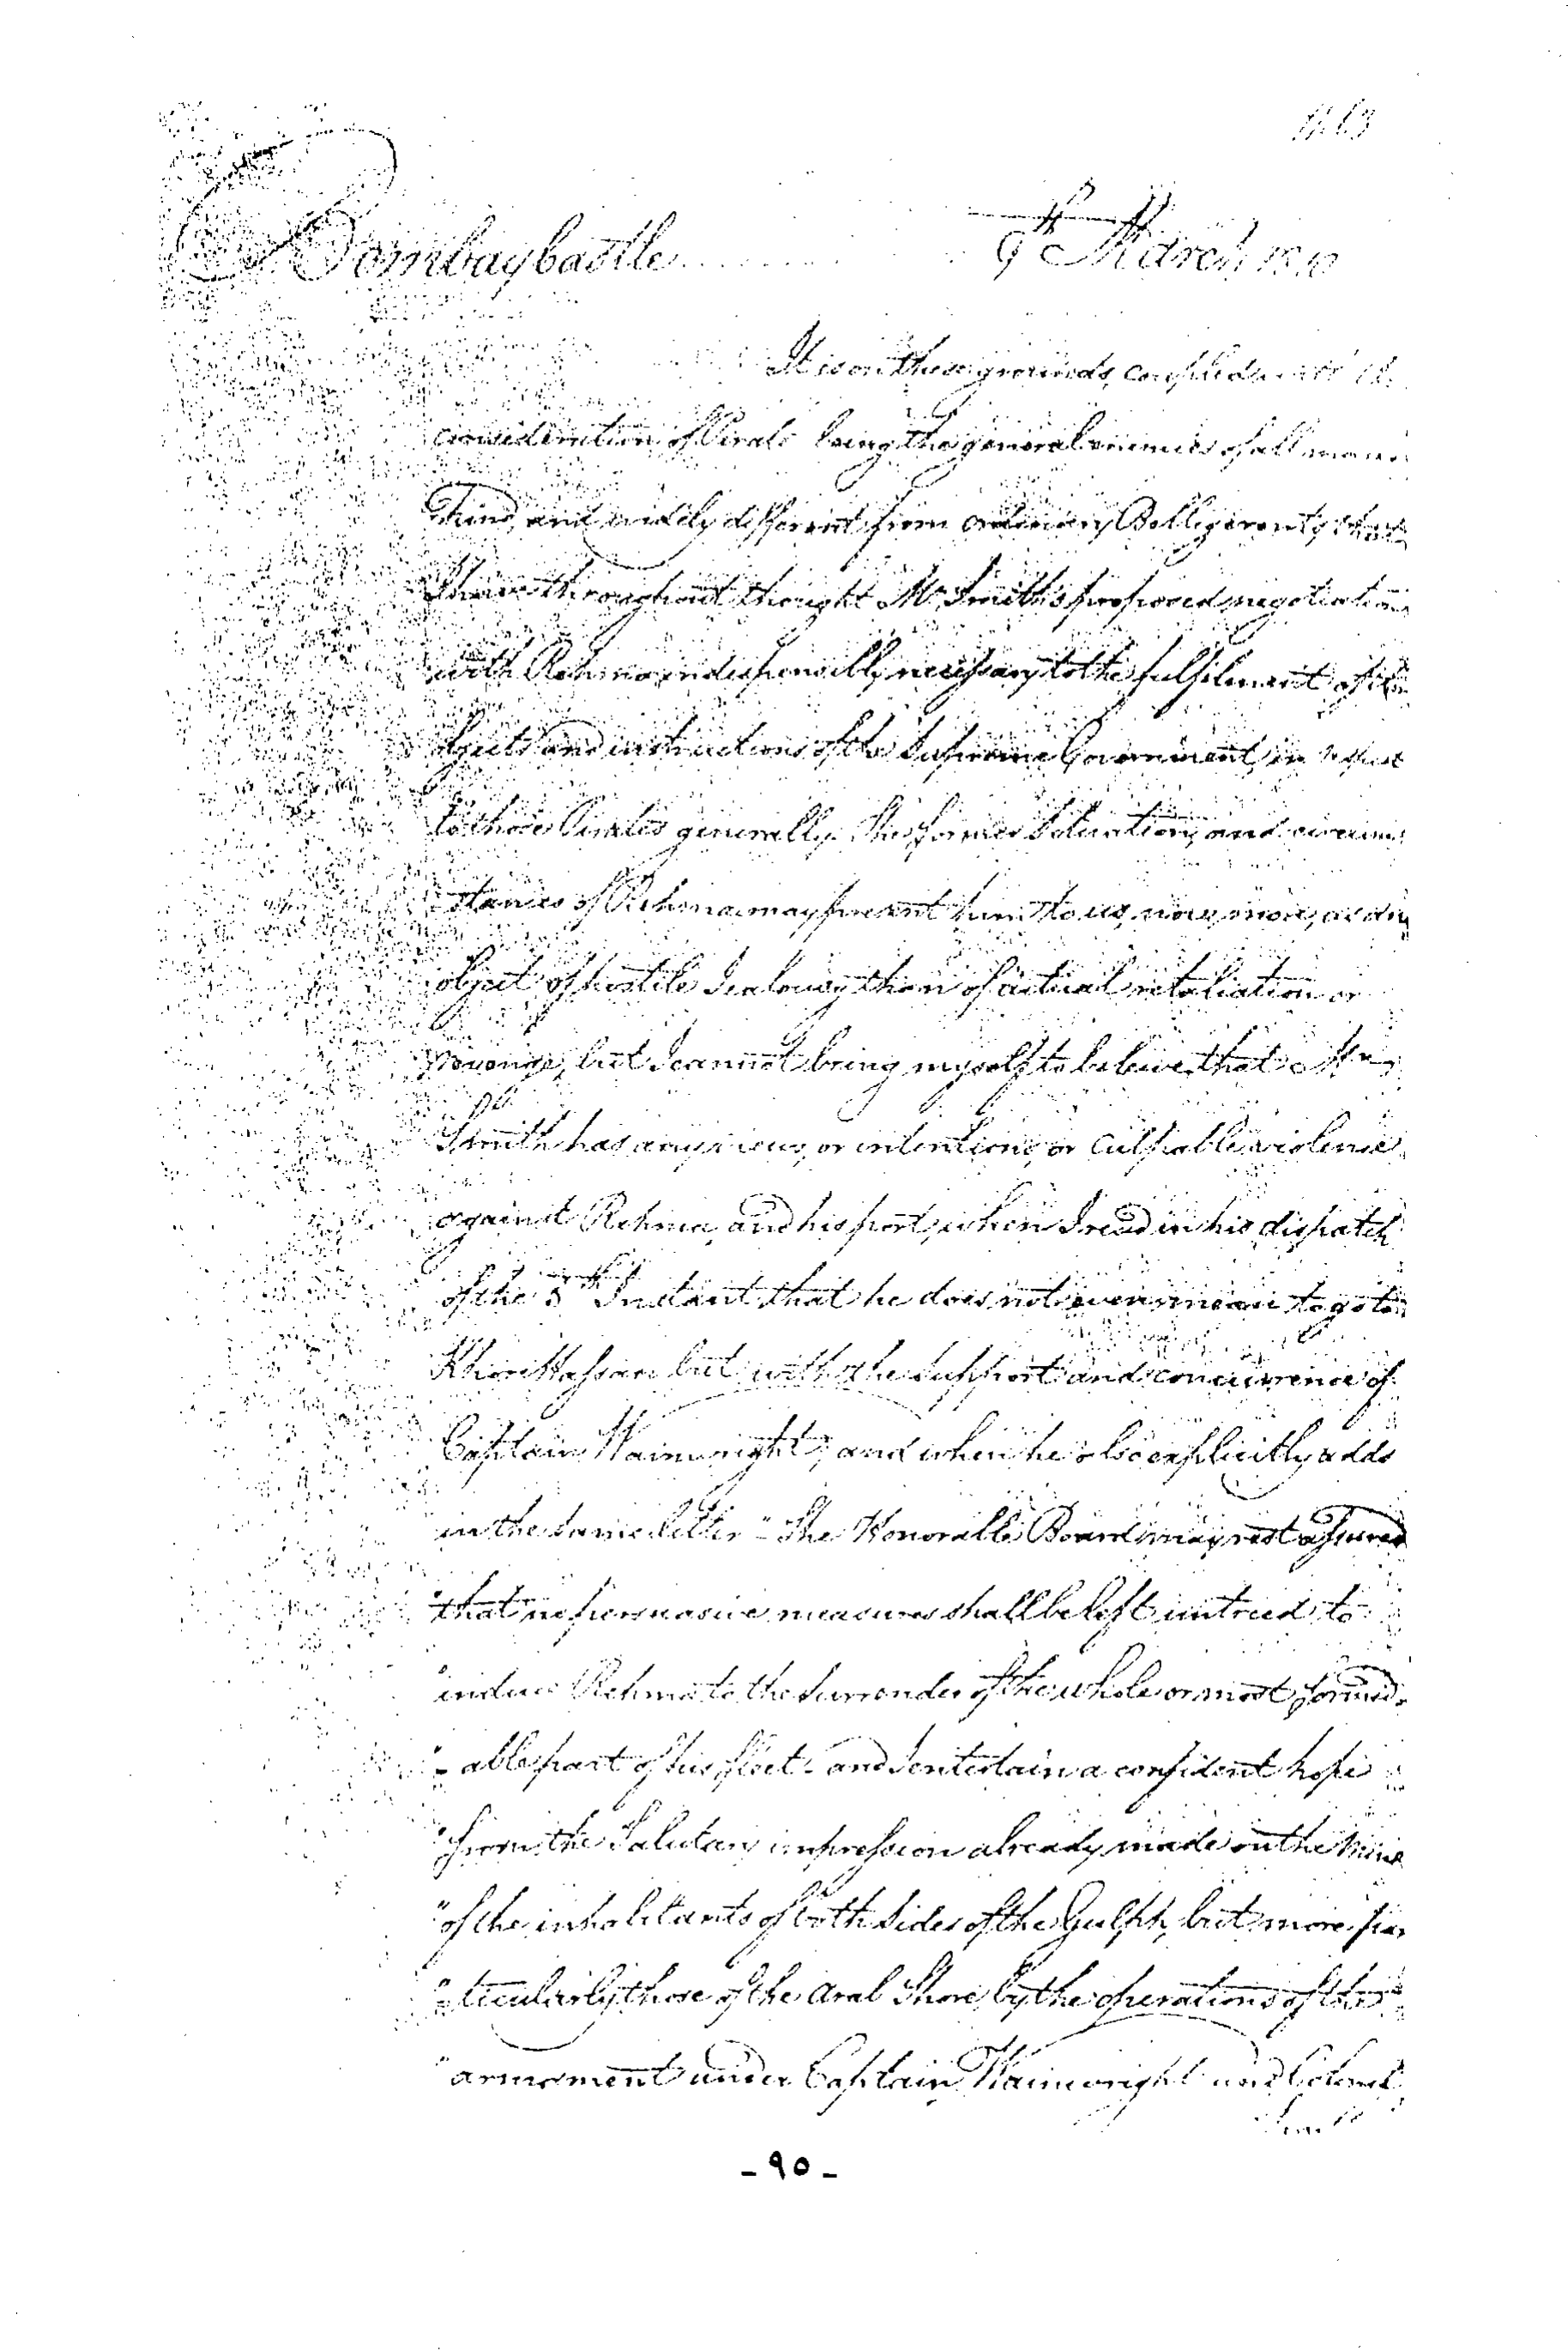 1163
Bombay Castle 9th March 1810
It is on these grounds, coupled with the
consideration of Pirates being the general enemies of all man
kind, and widely different from ordinary Belligerents that
I have throughout thought Mr. Smith's proposed negotiations
with Rehma indispensably necessary to the fulfilment of the
objects and instructions of the Supreme Government, in respect
to those Pirates generally. The former Situation, and circum
stances of Rehma may present him to us, now, more, as an
object of hostile Jealousy than of actual retaliation or
revenge, but I cannot bring myself to believe, that Mr.
Smith has any views, or intentions, or culpable violence
against Rehma, and his port, when I read in his dispatch
of the 5th Instant, that he does not even mean to go to
Khor Hassan but with the support and concurrence of
Captain Wainwright; and when he also explicitly adds
in the same letter "The Honorable Board may rest assured
"that no persuasive measures shall be left untried to
"induce Rehma to the surrender of the whole or most formid-
"-able part of his fleet - and I entertain a confident hope
"from the Salutary impression already made on the mind
"of the inhabitants of both Sides of the Gulph, but more par
"ticularly those of the Arab Shore, by the operations of the
"armament under Captain Wainwright and Colonel
- ٩٥ -